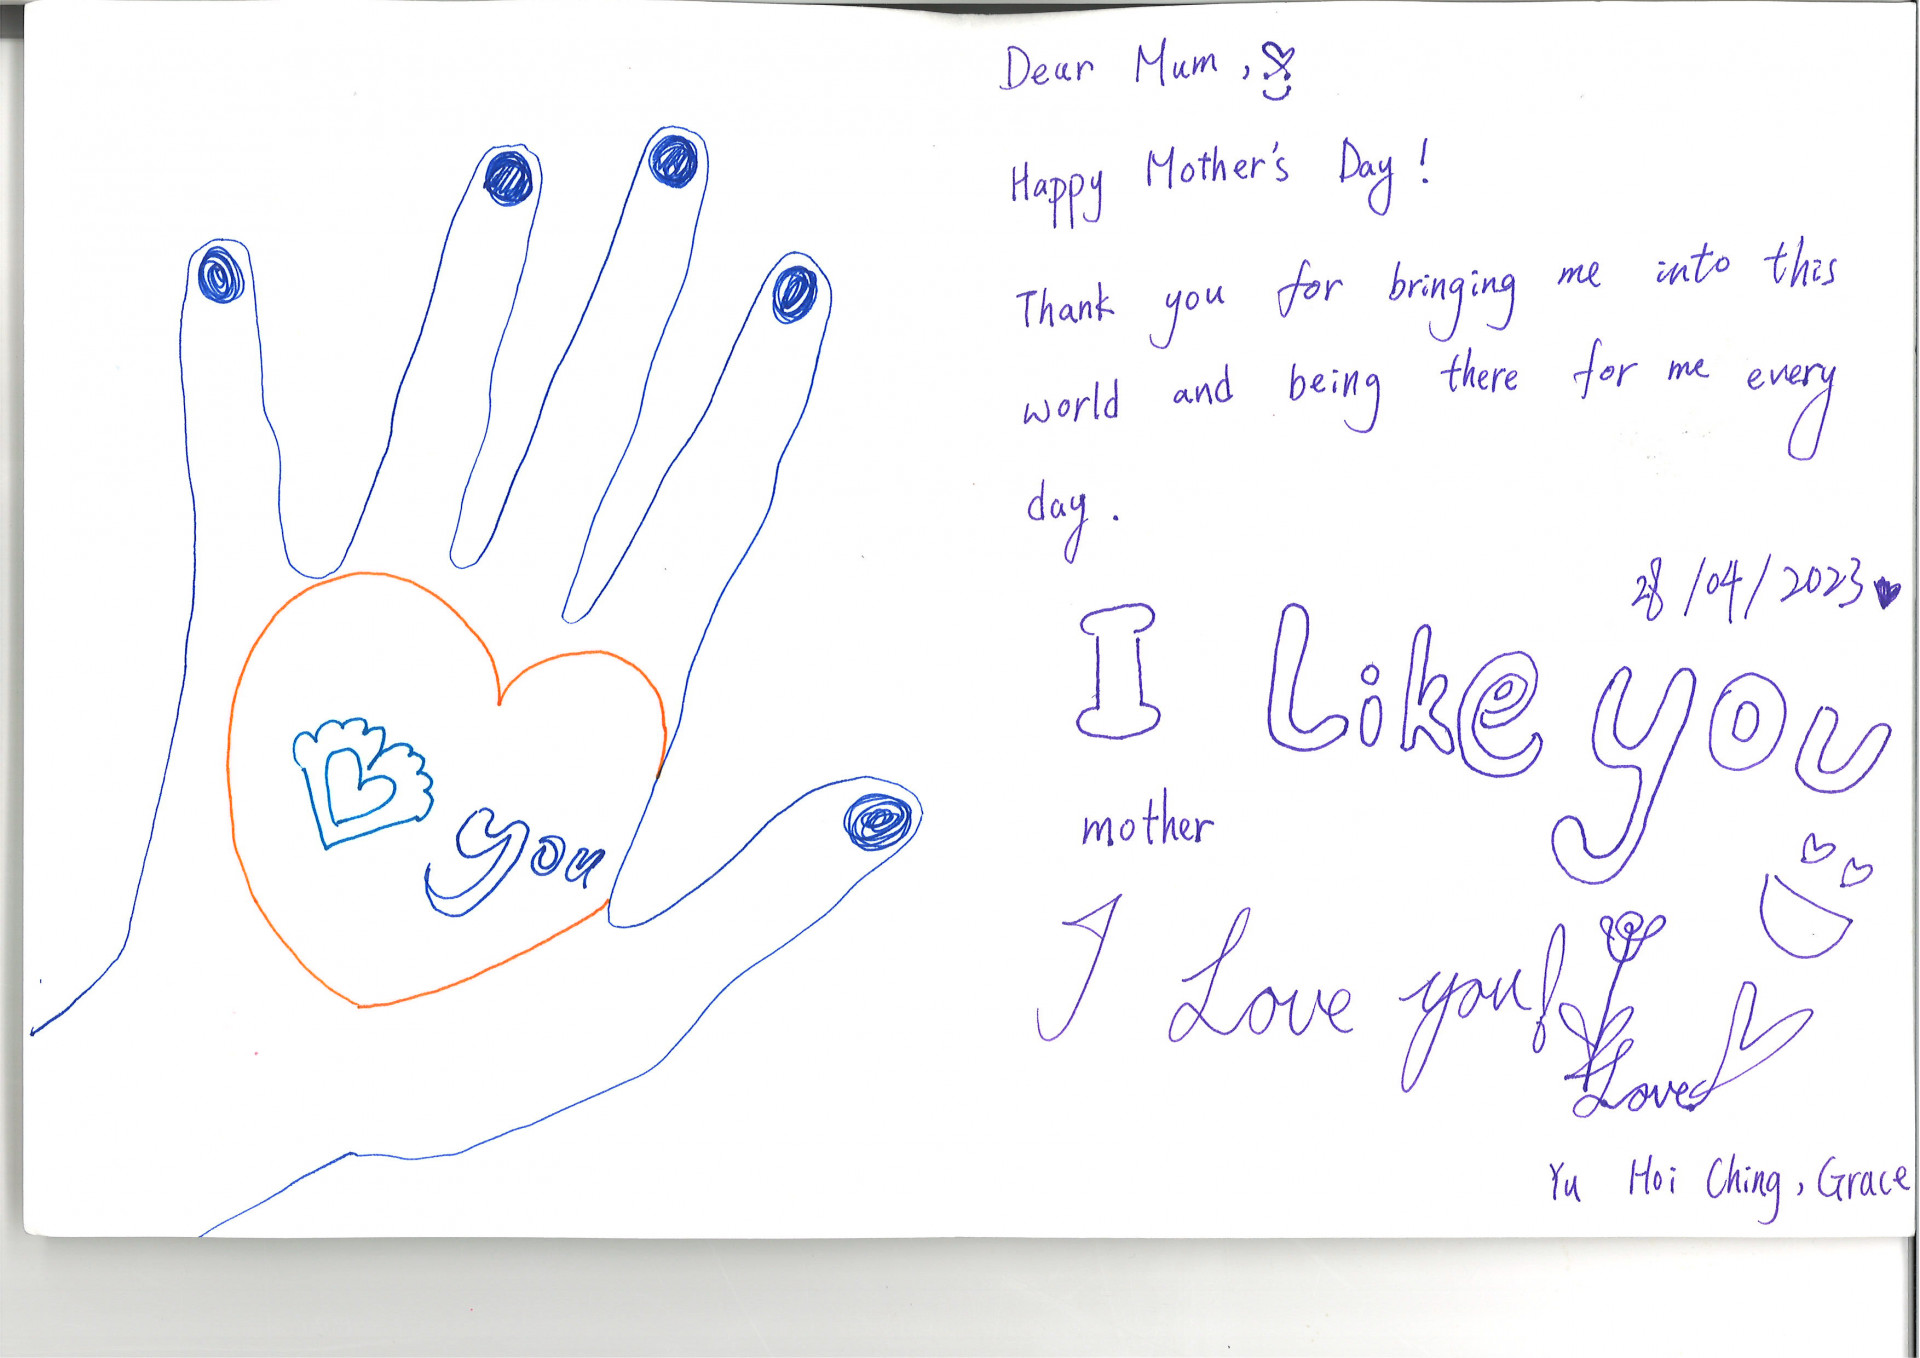 you
Dear Mum,
Happy Mother's Day!
Thank you for bringing me into this
world and being there for me every
day.
28/04/2023
I Like you
mother
I Love you!
Love
Yu Hoi Ching, Grace